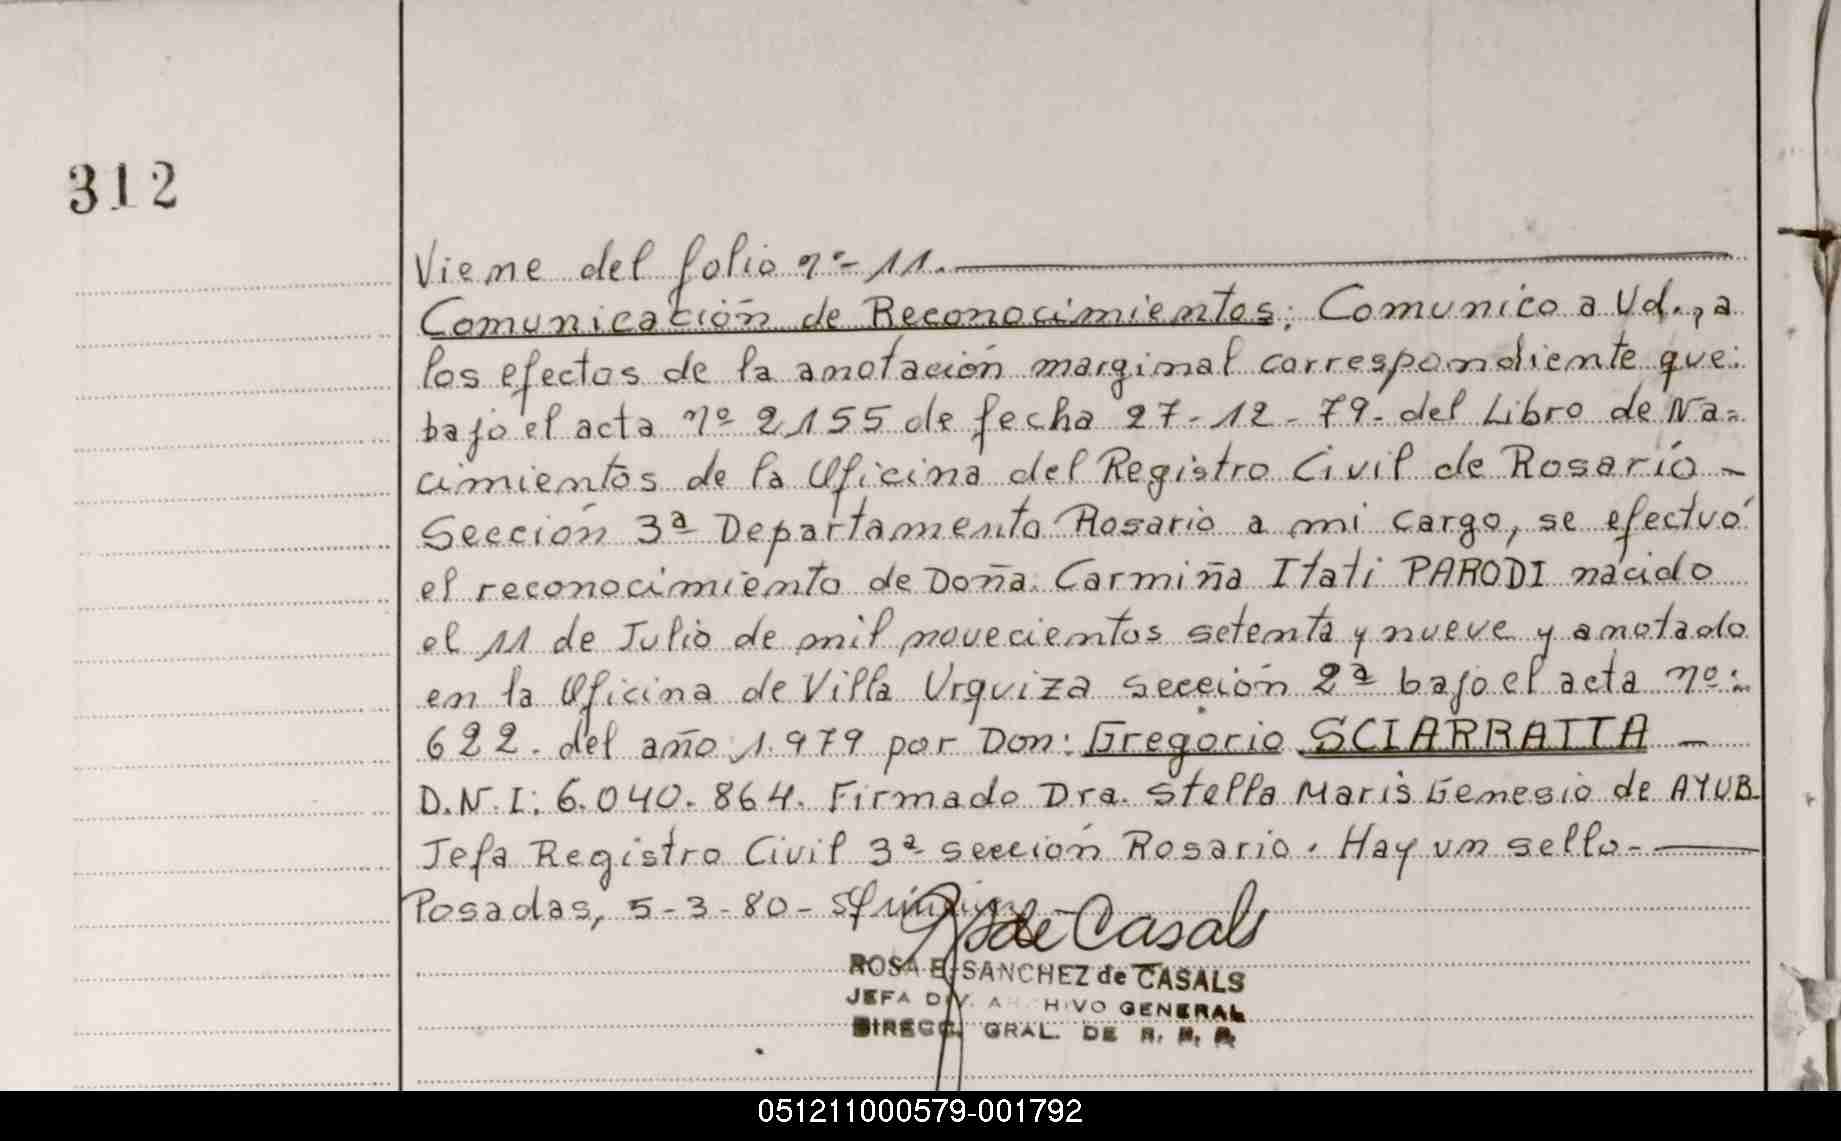 312
Viene del folio nº- 11.
Comunicación de Reconocimientos: Comunico a Ud., a
los efectos de la anotación marginal correspondiente que:
bajo el acta nº 2155 de fecha 27-12-79- del Libro de Na=
cimientos de la Oficina del Registro Civil de Rosario -
Sección 3ª Departamento Rosario a mi cargo, se efectuó
el reconocimiento de Doña. Carmiña Itati PARODI nacido
el 11 de Julio de mil novecientos setenta y nueve y anotado
en la Oficina de Villa Urquiza sección 2ª bajo el acta nº:
622. del año 1.979 por Don: Gregorio SCIARRATTA -
D.N.I: 6.040.864. Firmado Dra. Stella Maris Genesio de AYUB.
Jefa Registro Civil 3ª sección Rosario. Hay un sello-
Posadas, 5-3-80-
de Casals
ROSA E. SANCHEZ de CASALS
JEFA DIV. ARCHIVO GENERAL
DIRECC. GRAL. DE R. P. P.
051211000579-001792